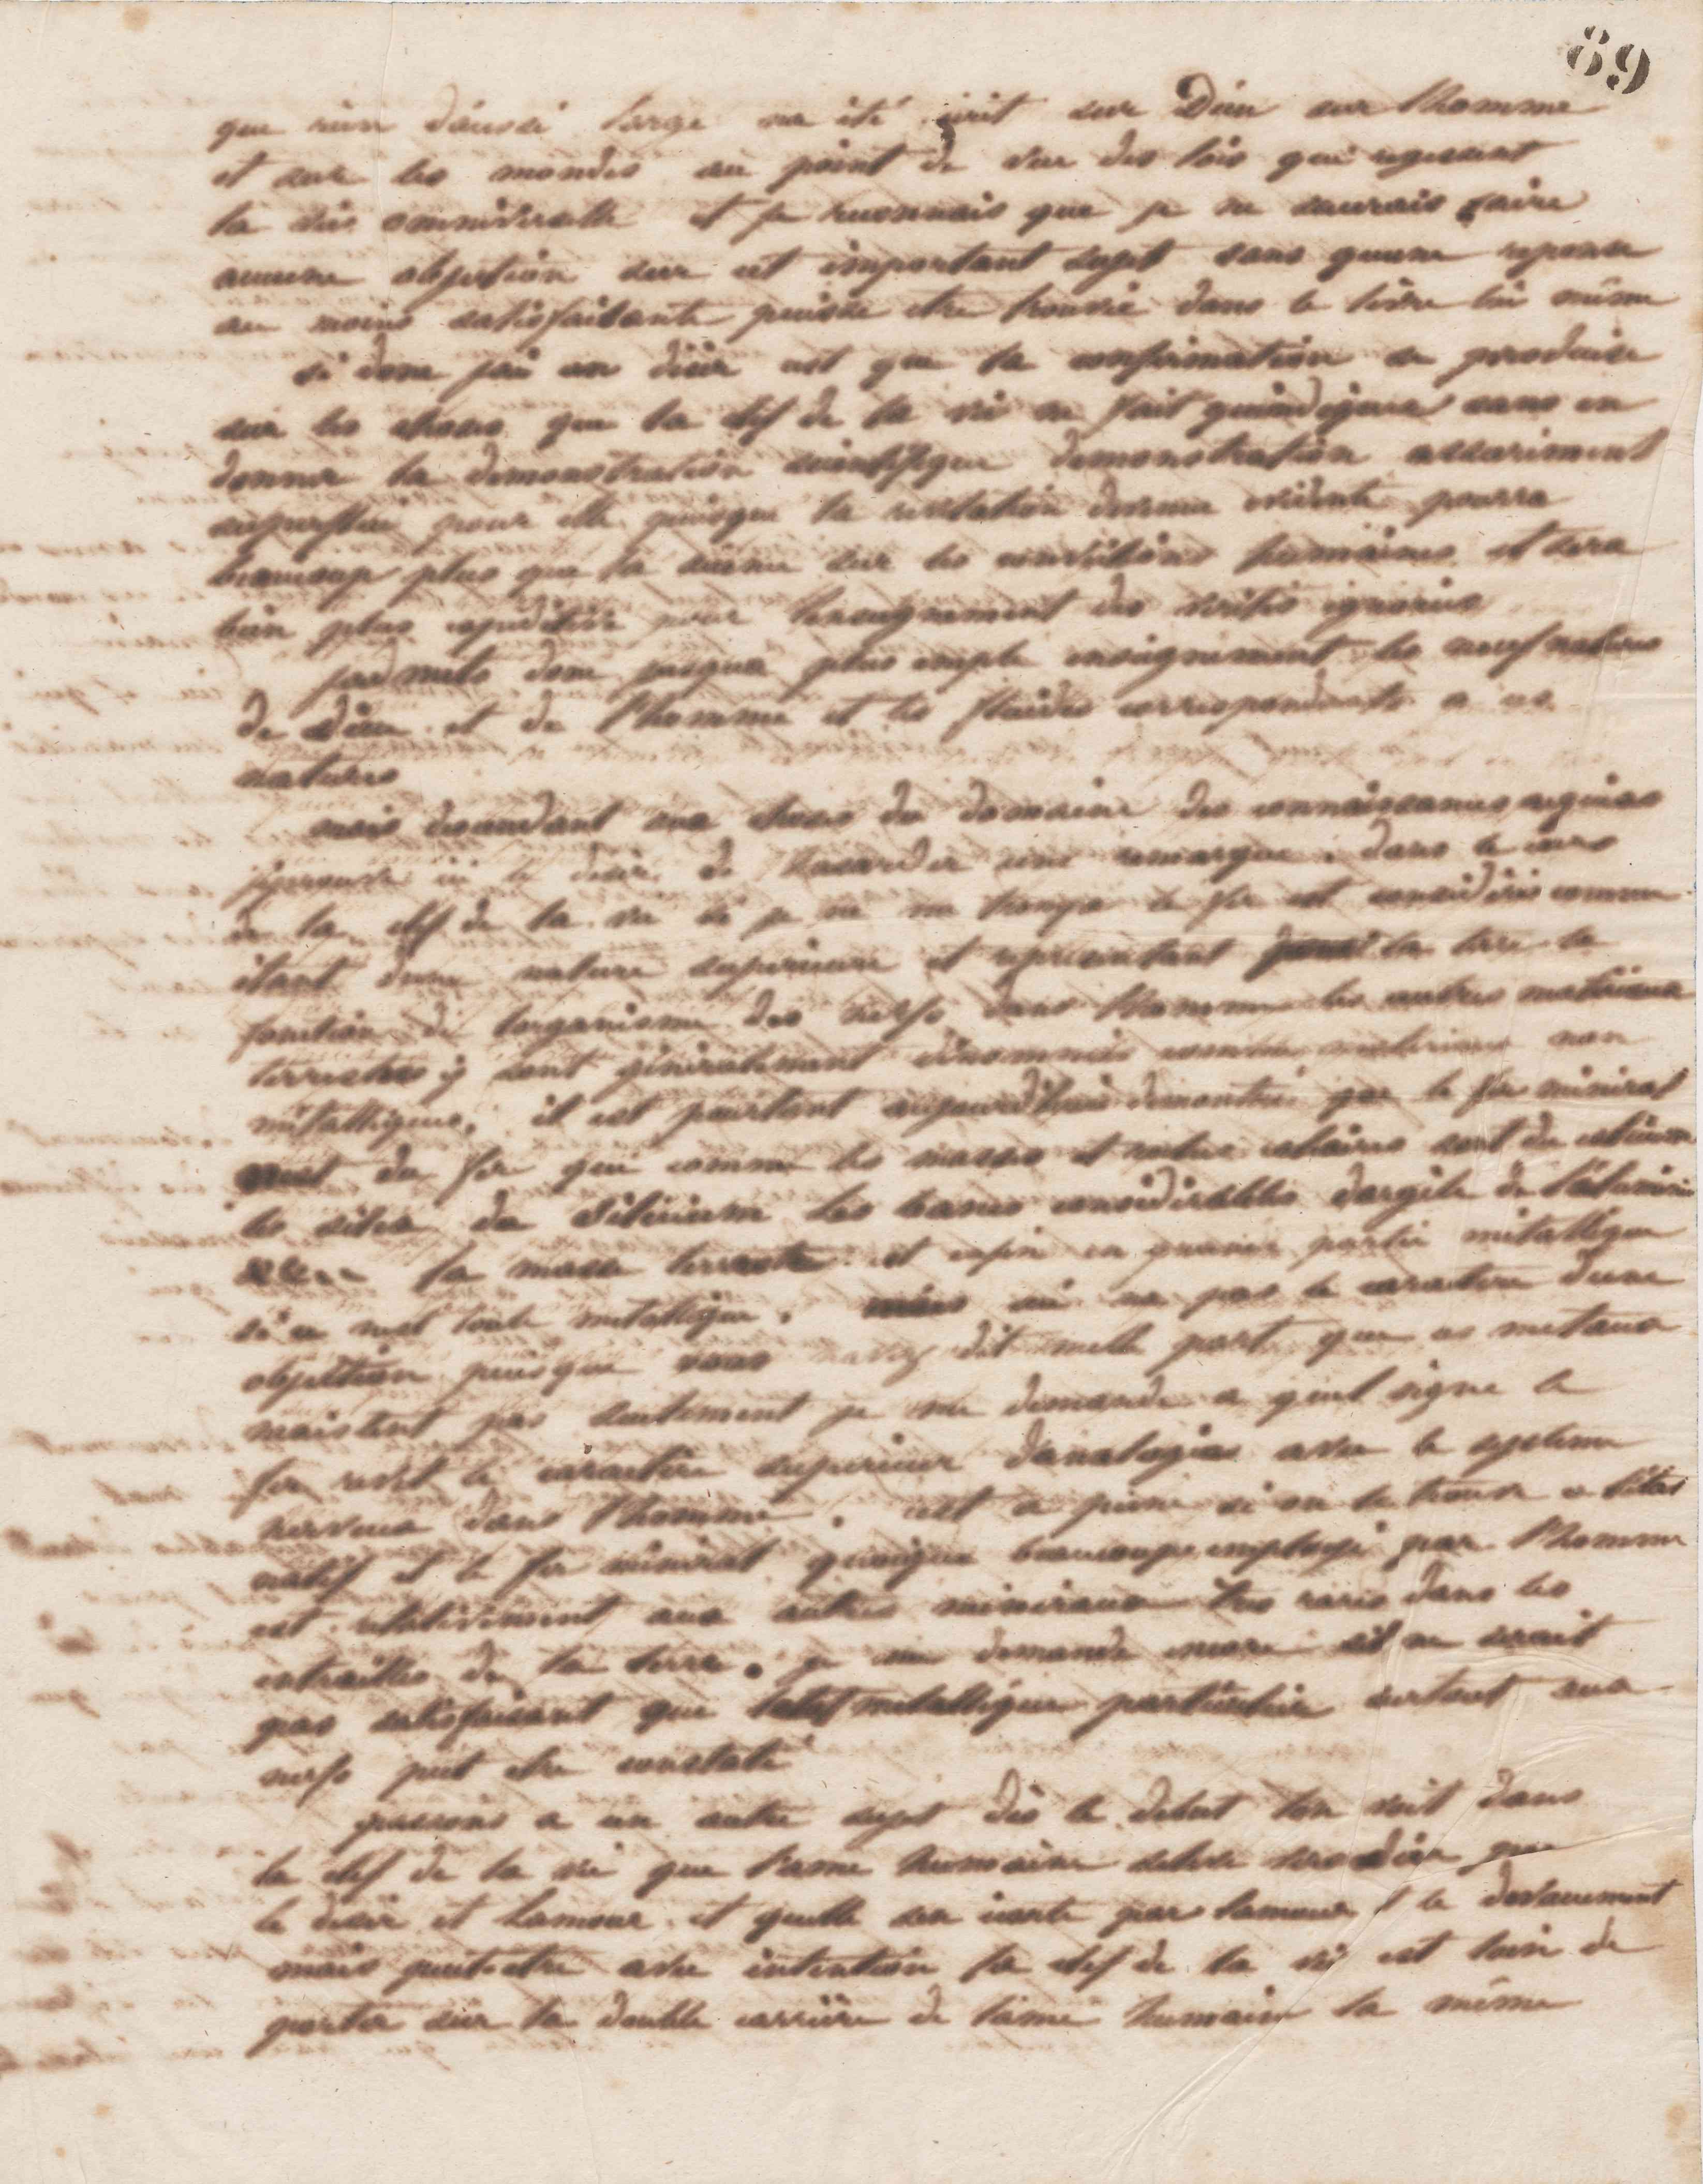 89
que rien d'aussi large na été écrit sur Dieu sur lhomme
et sur les mondes au point de vue des lois qui regissent
la vie omniverselle et je reconnais que je ne saurais faire
aucune objection sur cet important sujet sans quune reponse
au moins satisfaisante puisse etre trouvée dans le livre lui même
si donc jai un désir cest que la confirmation se produise
sur les choses que la clef de la vie ne fait quindiquer sans en
donner la demonstration scientifique demonstration assurément
superflue pour elle puisque la revelation devenue evidente pourra
beaucoup plus que la science sur les convictions humaines et sera
bien plus expeditive pour lenseignement des verités ignorées
jadmets donc jusqua plus ample enseignement les neuf natures
de Dieu et de lhomme et les fluides correspondants a ces
natures
mais descendant aux choses du domaine des connaissances aquises
jeprouve ici le desir de hasarder une remarque. dans le cours
de la clef de la vie si je ne me trompe le fer est consideré comme
étant dune nature superieure et representant pour la terre la
fonction de lorganisme des nerfs dans lhomme les autres materiaux
terrestres y sont généralement dénommés comme materiaux non
métalliques. il est pourtant aujourdhui demontré que le fer minéral
nest du fer que comme les masses et roches calcaires sont du calcium
les silex du silicium les bancs considérables dargile de laluminium
la masse terrestre est enfin en grande partie métallique
si ce nest toute metallique. ceci na pas le caractere dune
objection puisque vous navez dit nulle part que ces metaux
nexistent pas seulement je me demande a quel signe le
fer revet le caractère superieur danalogie avec le systeme
nerveux dans lhomme. cest a peine si on le trouve a létat
natif et le fer mineral quoique beaucoup employé par lhomme
est relativement aux autres mineraux tres rare dans les
entrailles de la terre. je me demande encore sil ne serait
pas satisfaisant que letat metallique particulier surtout aux
nerfs put etre constaté
passons a un autre sujet dès le debut lon voit dans
la clef de la vie que lame humaine seleve vers Dieu par
le desir et lamour et quelle sen ecarte par lamour et le devouement
mais peut etre avec intention la clef de la vie est loin de
porter sur la double carrière de lame humaine la même